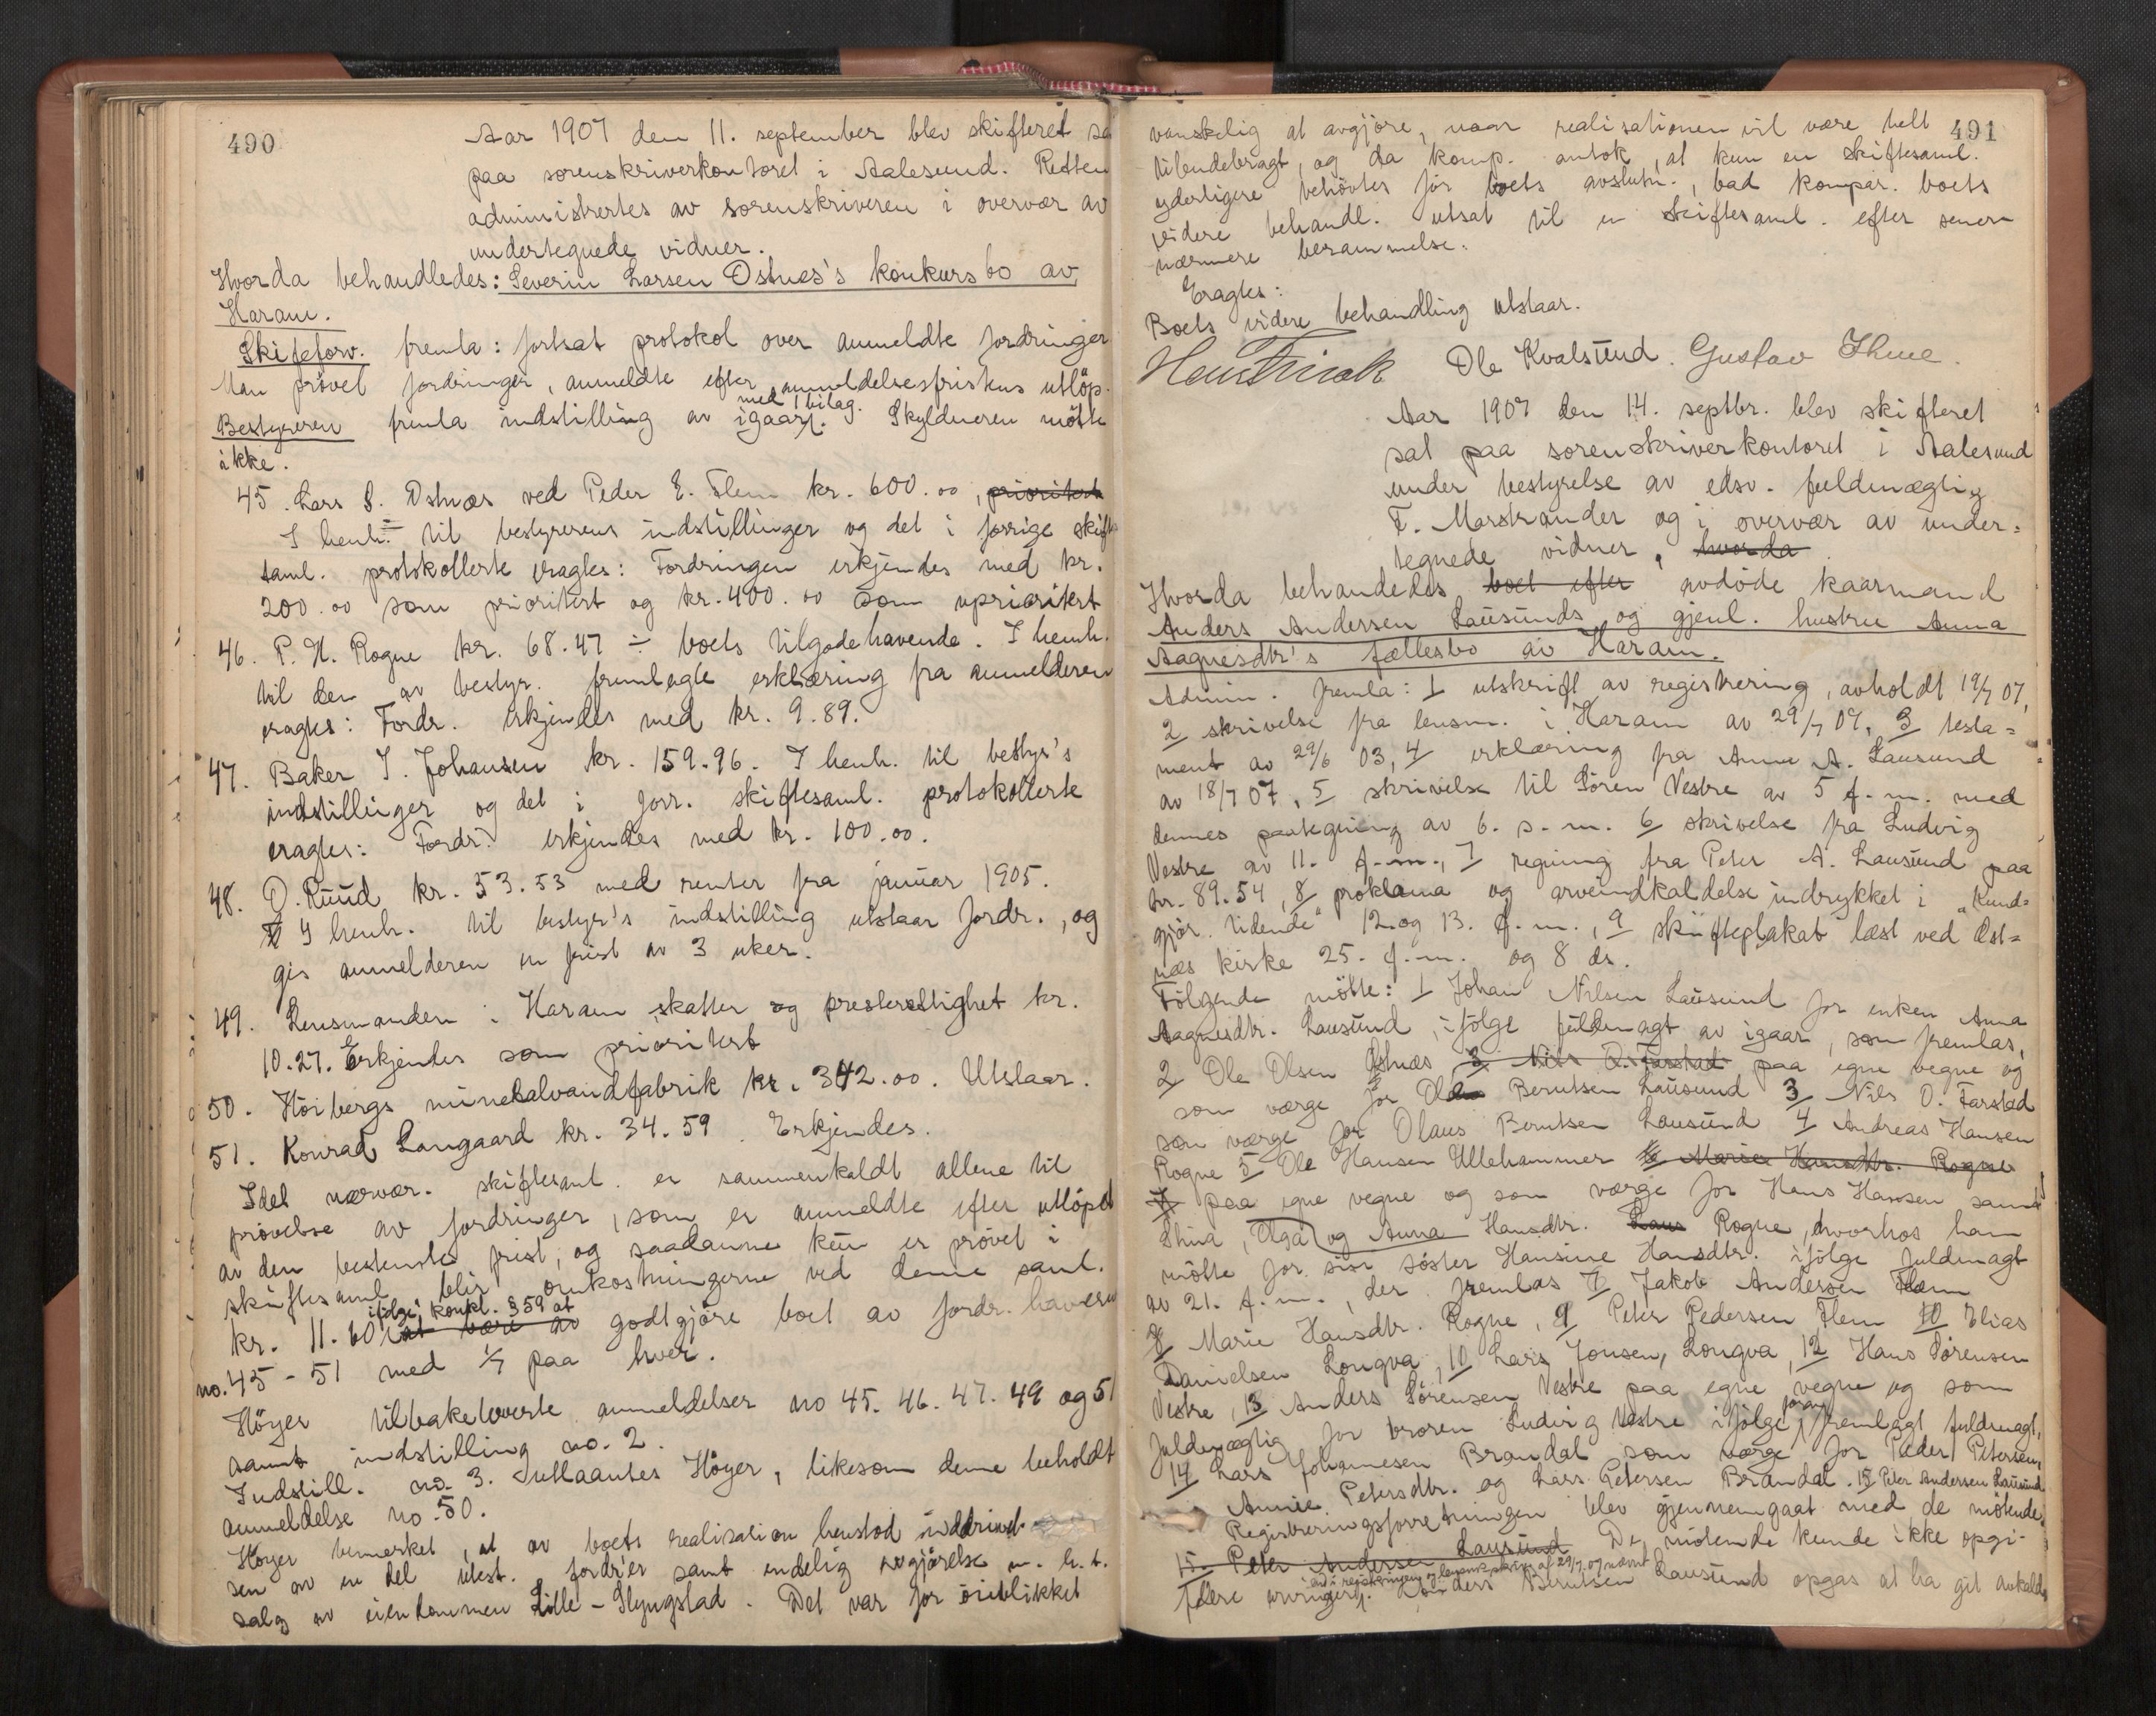 490
Aar 1907 den 11. september blev skifteret sa
paa sorenskriverkontoret i Aalesund. Retten
administrertes av sorenskriveren i overvær av
undertegnede vidner.
Hvorda behandledes: Severin Larsen Ostnæs's konkursbo av
Haram.
Skifteforv. fremla: fortsat protokol over anmeldte fordringer
Man prøvet fordringer, anmeldte efter anmeldelsesfristens utløp.
Bestyreren fremla indstilling av igaar med 1 bilag. Skyldneren møtte
ikke.
45. Lars S. Ostnæs ved Peder E. Flem kr. 600.00, prioritert
I henh. til bestyrerens indstillinger og det i forrige skifte
saml. protokollerte eragtes: Fordringen erkjendes med kr.
200.00 som prioritert og kr. 400.00 som uprioritert
46. P. H. Rogne kr. 68.47 ÷ boets tilgodehavende. I henh.
til den av bestyr. fremlagte erklæring fra anmelderen
eragtes: Fordr. erkjendes med kr. 9.89.
47. Baker I. Johansen kr. 159.96. I henh. til bestyr's
indstillinger og det i forr. skiftesaml. protokollerte
eragtes: Fordr. erkjendes med kr. 100.00.
48. O. Ruud kr. 53.53 med renter fra januar 1905.
I henh. til bestyr's indstilling utstaar fordr., og
gis anmelderen en frist av 3 uker.
49. Lensmanden i Haram skatter og presterettighet kr.
10.27. Erkjendes som prioritert
50. Høibergs mineralvandfabrik kr. 342.00. Utstaar.
51. Konrad Langaard kr. 34.59. Erkjendes.
Idet nærvær. skiftesaml. er sammenkaldt allene til
prøvelse av fordringer, som er anmeldte efter utløpet
av den bestemte frist, og saadanne kun er prøvet i
skiftesaml. blir omkostningerne ved denne saml.
kr. 11.60 ifølge konkl. § 59 at at være av godtgjøre boet av fordr. havern
no. 45 - 51 med 1/7 paa hver.
Høyer tilbakeleverte anmeldelser no 45. 46. 47. 49 og 51
samt indstilling no. 2.
Indstill. no. 3. utlaantes Høyer, likesom denne beholdt
anmeldelse no. 50.
Høyer bemerket, at av boets realisation henstod inddrivel
sen av en del utest. fordr'er samt endelig avgjørelse m. h. t.
salg av eiendommen Lille-Slyngstad. Det var for øieblikket
491
vanskelig at avgjøre, naar realisationen vil være helt
tilendebragt, og da komp. antok, at kun en skiftesaml.
yderligere behøvtes før boets avslutn., bad kompar. boets
videre behandl. utsat til en skiftesaml. efter senere
nærmere berammelse.
Eragtes:
Boets videre behandling utstaar.
Ole Kvalsund. Gustav Thue.
Aar 1907 den 14. septbr. blev skifteret
sat paa sorenskriverkontoret i Aalesund
under bestyrelse av edsv. fuldmægtig
F. Marstrander og i overvær av under=
tegnede vidner, hvorda
Hvorda behandedes boet efter avdøde kaarmand
Anders Andersen Lausunds og gjenl. hustru Anna
Aagnesdtr's fællesbo av Haram.
Admin. fremla: 1 utskrift av registrering, avholdt 19/7 07,
2 skrivelse fra lensm. i Haram av 29/7 07, 3 testa=
ment av 29/6 03, 4 erklæring fra Anna A. Lausund
av 18/7 07, 5 skrivelse til Søren Vestre av 5 f. m. med
dennes paategning av 6. s. m. 6 skrivelse fra Ludvig
Vestre av 11. f. m., 7 regning fra Peter A. Lausund paa
kr. 89.54, 8 proklama og arveindkaldelse indrykket i "Kund=
gjør. tidende" 12. og 13. f. m., 9 skifteplakat læst ved Øst=
næs kirke 25. f. m. og 8 ds.
Følgende møtte: 1 Johan Nilsen Lausund for enken Anna
Aagnesdtr. Lausund, ifølge fuldmagt av igaar, som fremlas,
2 Ole Olsen Østnæs, 3 Nils O. Farstad paa egne vegne og
som værge for Ole Berntsen Lausund 3 Nils O. Farstad
som værge for Olaus Berntsen Lausund 4 Andreas Hansen
Rogne 5 Ole Hansen Ullehammer 6 Marie Hansdtr. Rogne
7 paa egne vegne og som værge for Hans Hansen samt
Stina, Olga og Anna Hansdtr. Rogne, hvorhos han
møtte for sin søster Hansine Hansdtr. ifølge fuldmagt
av 21. f. m., der fremlas 7 Jakob Andersen Flem
8 Marie Hansdtr. Rogne, 9 Peter Pedersen Flem 10 Elias
Danielsen Longva, 10 Lars Jonsen, Longva, 12 Hans Sørensen
Vestre, 13 Anders Sørensen Vestre paa egne vegne og som
fuldmægtig for broren Ludvig Vestre ifølge foran fremlagt fuldmagt,
14 Lars Johannesen Brandal som værge for Peder Petersen,
Annie Petersdtr. og Lars Petersen Brandal. 15 Peter Andersen Lausund
Registreringsforretningen blev gjennemgaat med de møtende.
15. Peter Andersen Lausund De møtende kunde ikke opgi-
flere arvinger end i registreringen og lensm's skriv. af 29/7 07 nævnt. Anders Berntsen Lausund opgas at ha git avkald